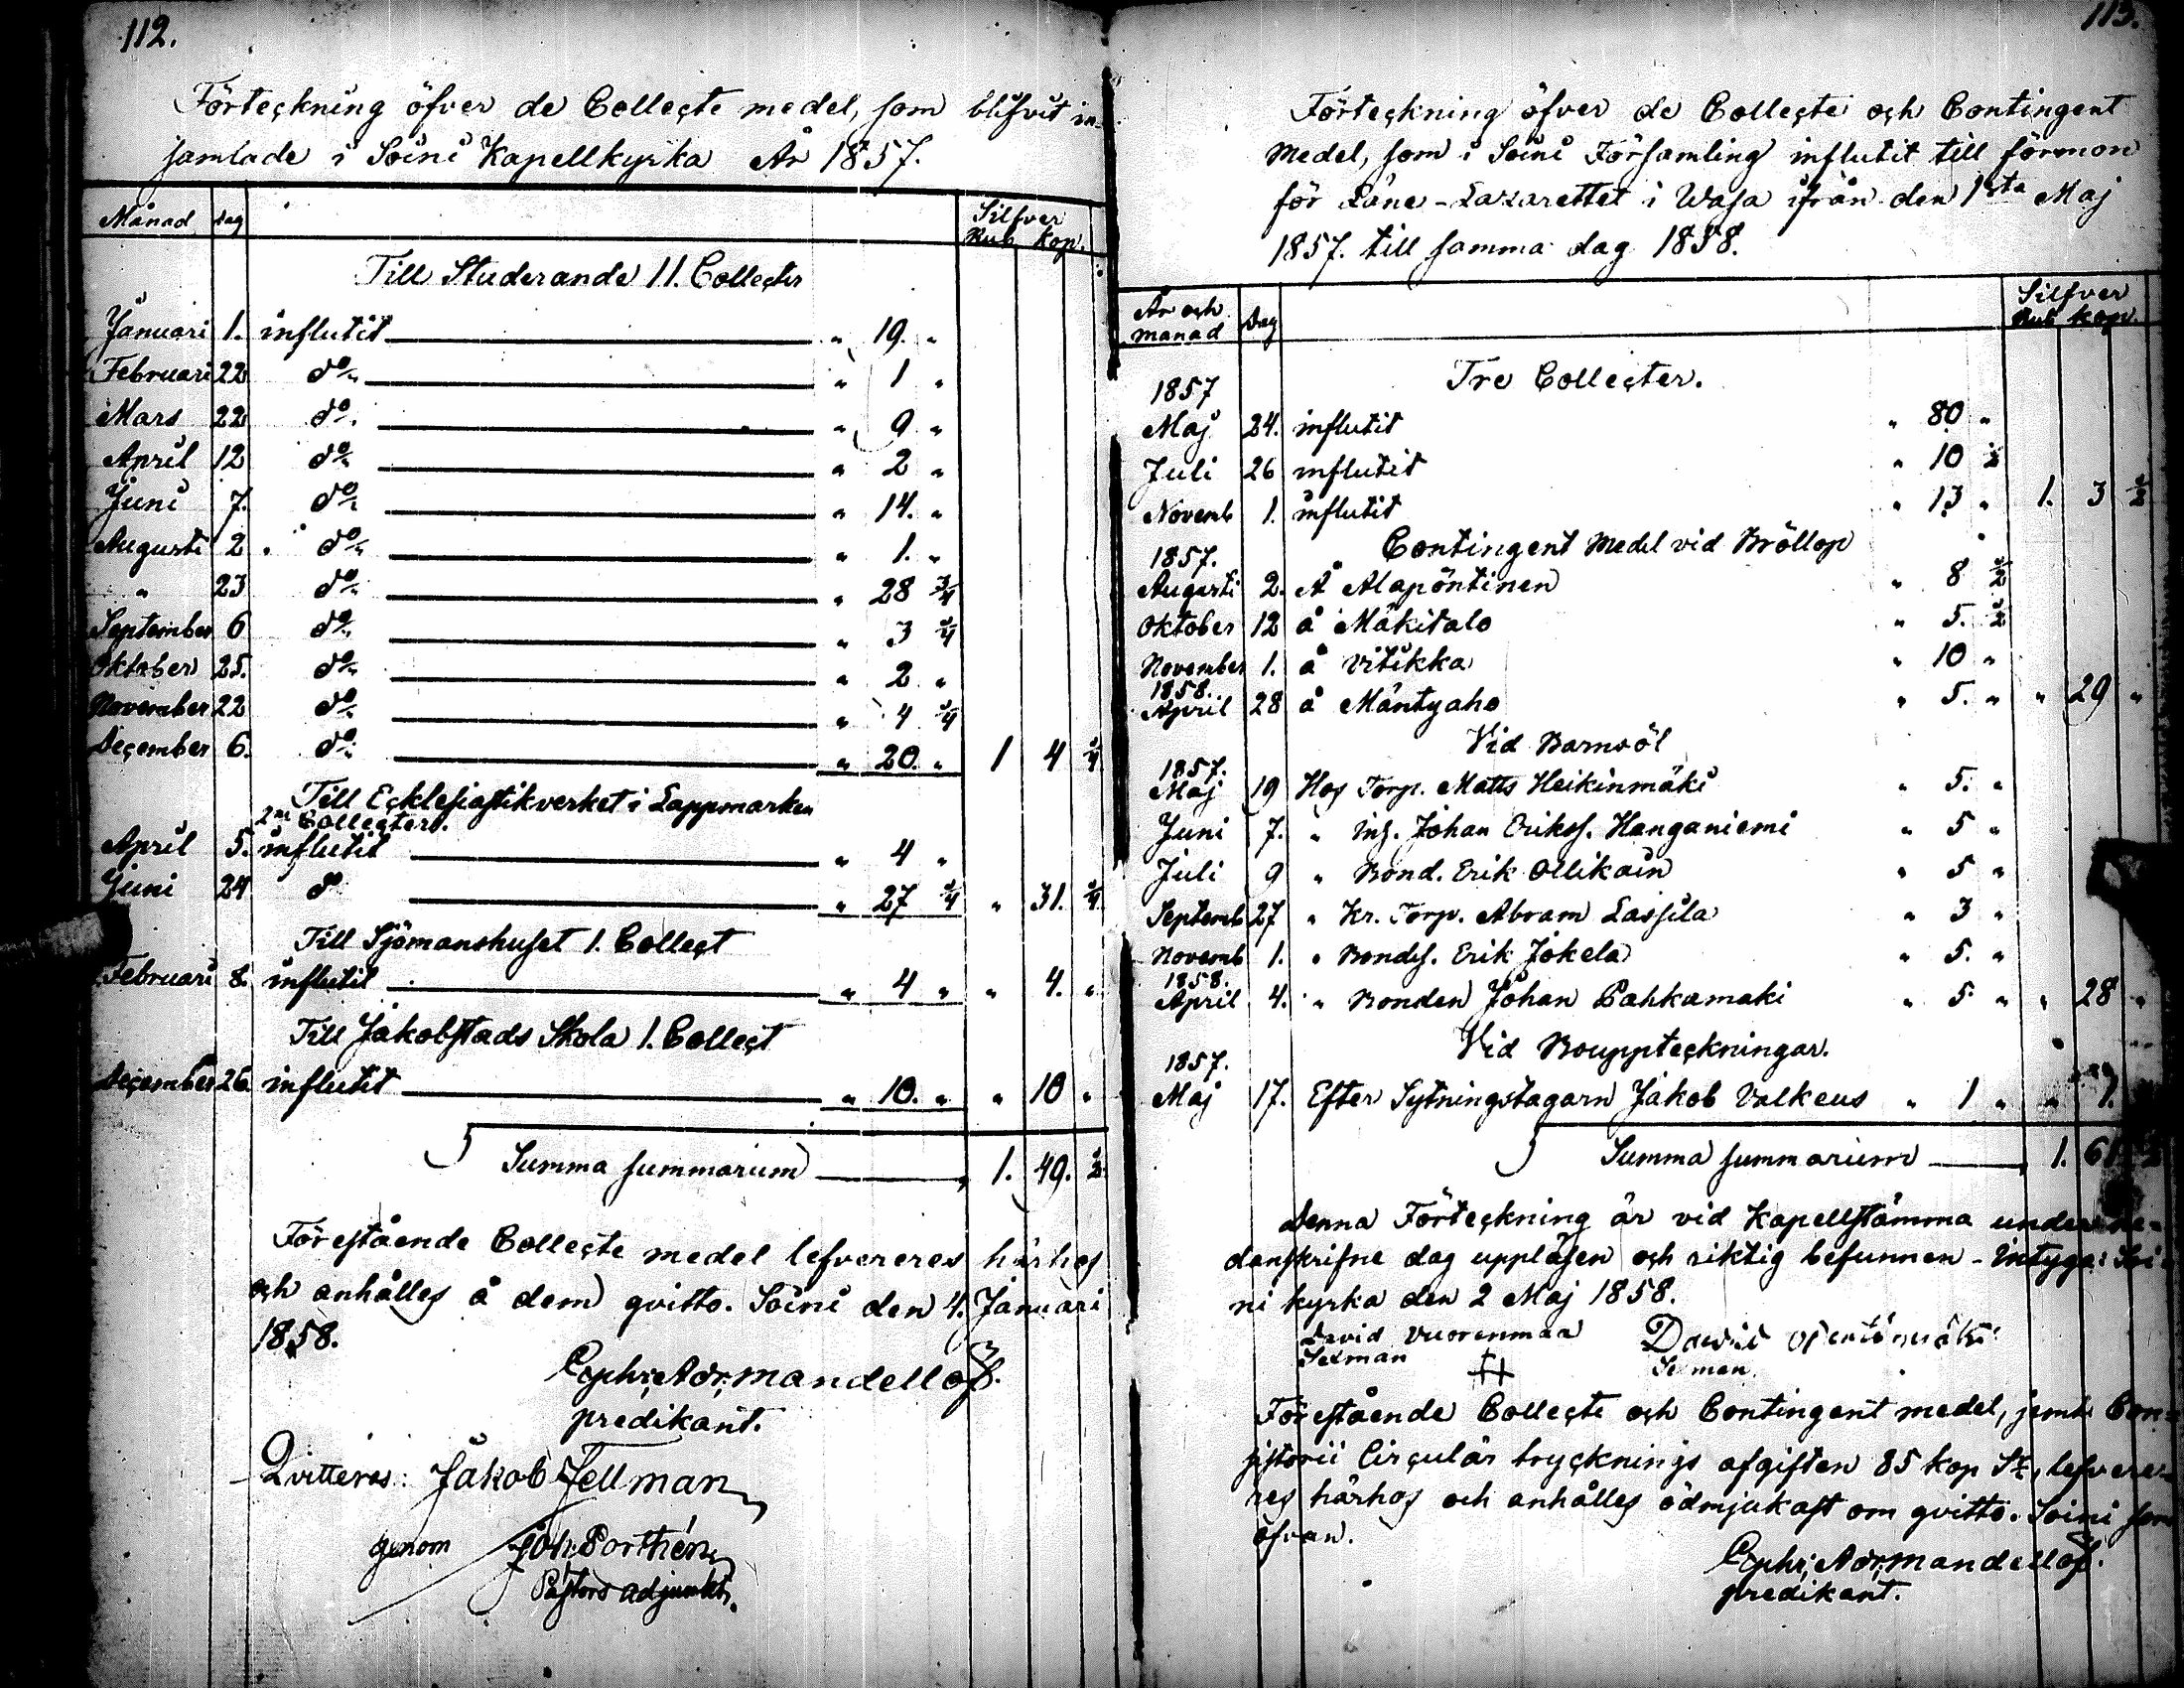 112.
Förteckning öfver de Collecte medel, som blifvit in-
samlade i Soini Kapellkyrka År 1857.
Månad dag Silfver
Rub. Kop.
Till Studerande 11. Collecter
Januari 1. influtit " 19. "
Februari 22 do " 1 "
Mars 22 do " 9 "
April 12 do " 2 "
Juni 7. do " 14. "
Augusti 2 do " 1. "
" 23 do " 28 3/4
September 6 do " 3 1/4
Oktober 25. do " 2 "
November 22 do " 4 1/4
December 6. do " 20. " 1 4 1/4
Till Ecklesiastikverket i Lappmarken
2ne Collecter.
April 5. influtit " 4 "
Juni 24 do " 27 1/4 " 31. 1/4
Till Sjömanshuset 1. Collect
Februari 8. influtit " 4 " " 4. "
Till Jakobstads Skola 1. Collect
December 26. influtit " 10. " " 10 "
Summa summarum 1. 49. 1/2
Förestående Collecte medel lefvereres härhos
och anhålles å dem qvitto. Soini den 4. Januari
1858.
Ephr. Adr. Mandellöf.
predikant.
Qvitteras: Jakob Fellman
genom Joh. Porthén
Pastors adjunkt.
113.
Förteckning öfver de Collecte och Contingent
Medel, som i Soini Församling influtit till förmon
för Läne-Lazarettet i Wasa ifrån den 1sta Maj
1857. till samma dag 1858.
År och månad Dag Silfver
Rub. Kop.
Tre Collecter.
1857
Maj 24. influtit " 80 "
Juli 26 influtit " 10 1/2
Novemb 1. influtit " 13 " 1. 3 1/2
Contingent Medel vid Bröllop
1857.
Augusti 2. Å Alapöntinen " 8 1/2
Oktober 12 å Mäkitalo " 5. 1/2
November 1. å Vitikka " 10 "
1858.
April 28 å Mäntyaho " 5. " " 29 "
Vid Barnsöl
1857.
Maj 19 Hos Torp. Matts Heikinmäki " 5. "
Juni 7. " Inh. Johan Erikss. Hanganiemi " 5 "
Juli 9 " Bond. Erik Ollikain " 5 "
Septemb 27 " Kr. Torp. Abram Lassila " 3 "
Novemb 1. " Bondes. Erik Jokela " 5. "
1858.
April 4. " Bonden Johan Pahkamäki " 5 " " 28 "
Vid Bouppteckningar.
1857.
Maj 17. Efter Sytningstagarn Jakob Valkeus " 1 " " 1.
Summa summarum 1. 61
Denna Förteckning är vid Kapellstämma under ne-
danskrifne dag uppläsen och riktig befunnen - Intyga: Soi-
ni kyrka den 2 Maj 1858.
David Vuorenmaa David
Sexman Sexman
Förestående Collecte och Contingent medel, jemte Con-
sistorii Circulär trycknings afgiften 85 kop Sr, lefvere-
res härhos och anhålles ödmjukast om qvitto. Soini som
ofvan.
Ephr. Adr. Mandellöf.
predikant.